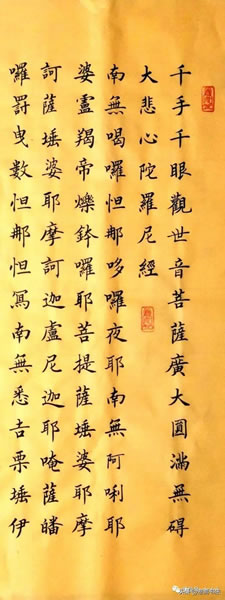 千手千眼觀世音菩薩廣大圓滿無碍
大悲心陀羅尼經
南無喝囉怛那哆囉夜耶南無阿唎耶
婆盧羯帝爍鉢囉耶菩提薩埵婆耶摩
訶薩埵婆耶摩訶迦盧尼迦耶唵薩皤
囉罰曳數怛那怛寫南無悉吉栗埵伊